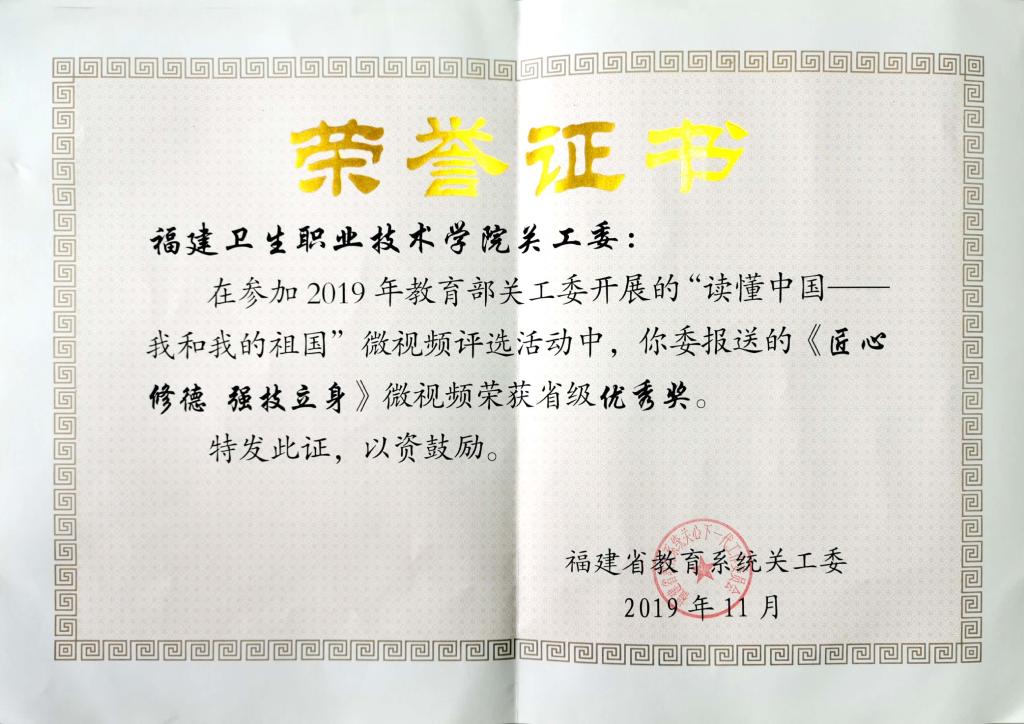 荣誉证书
福建卫生职业技术学院关工委：
在参加 2019 年教育部关工委开展的“读懂中国——
我和我的祖国”微视频评选活动中，你委报送的《匠心
修德 强技立身》微视频荣获省级优秀奖。
特发此证，以资鼓励。
福建省教育系统关工委
2019 年 11 月